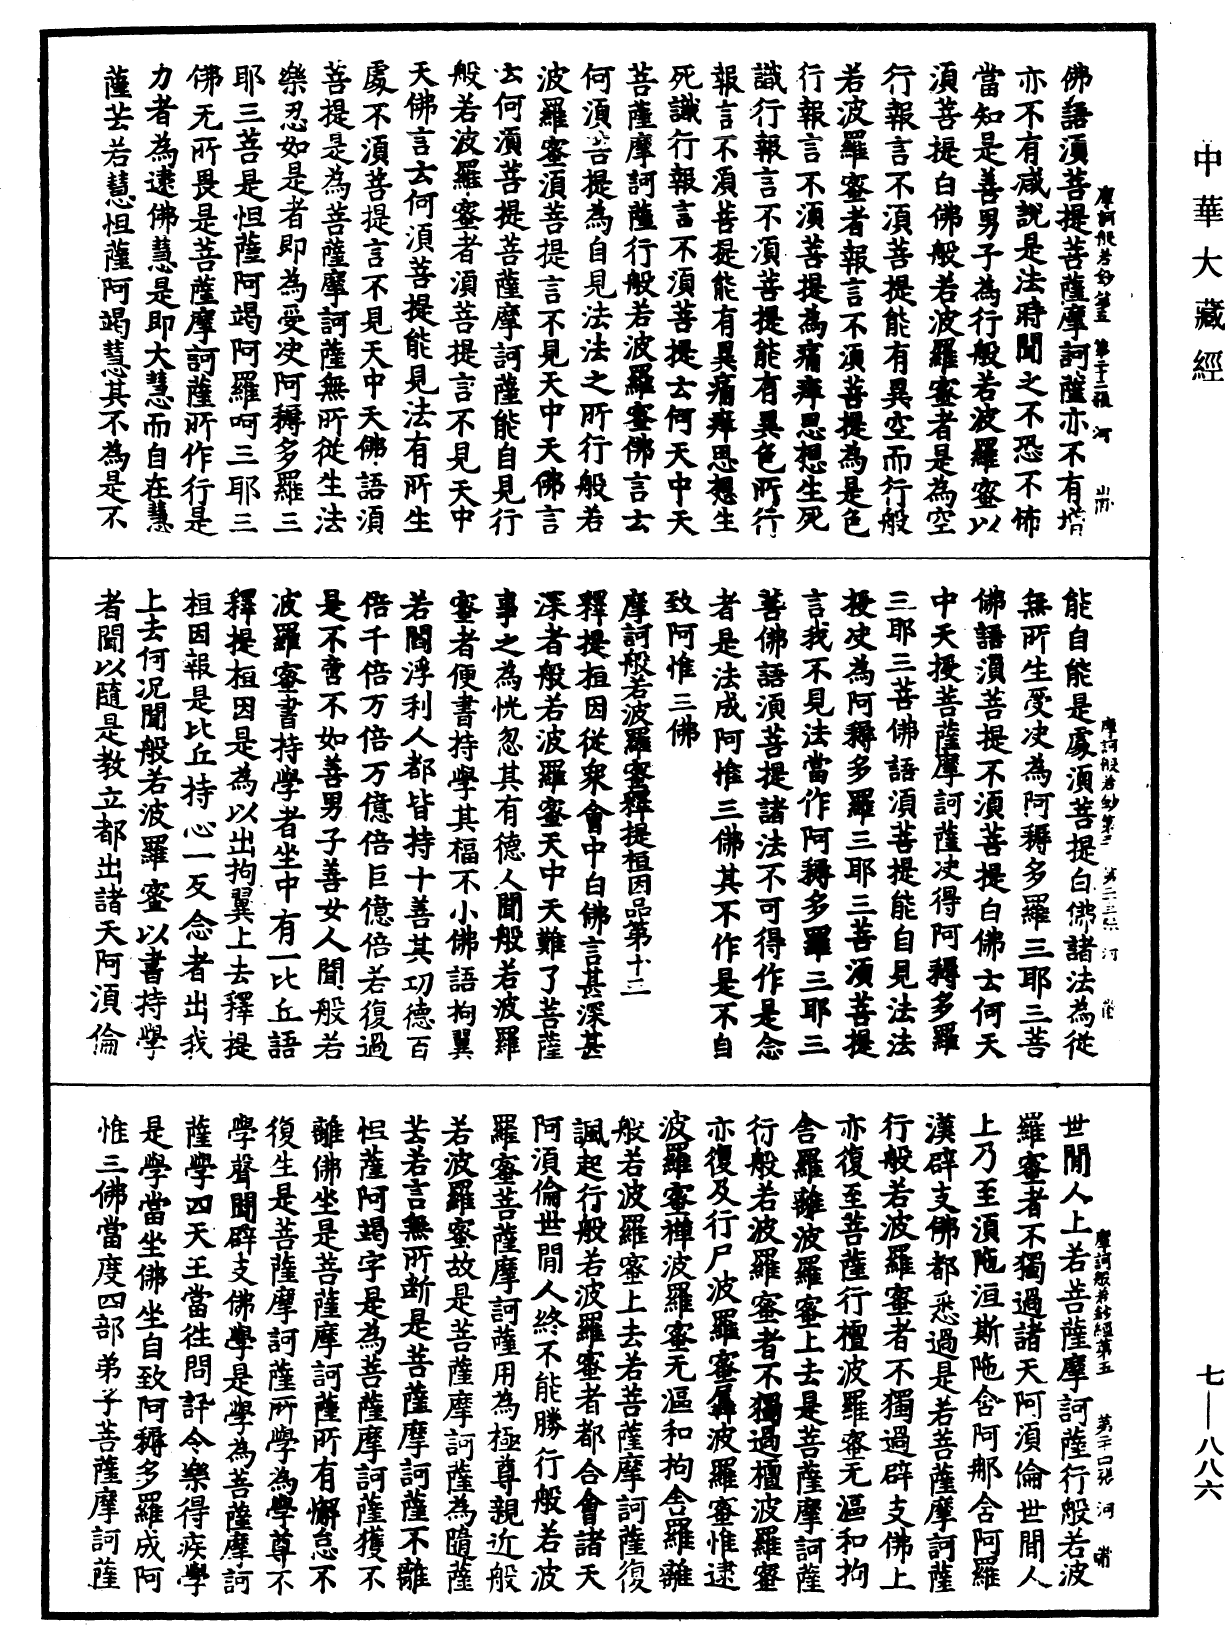 中華大藏經
摩訶般若鈔第五 第二十二張 河
佛語湏菩提菩薩摩訶薩亦不有增
亦不有减說是法時聞之不恐不怖
當知是善男子為行般若波羅蜜以
湏菩提白佛般若波羅蜜者是為空
行報言不湏菩提能有異空而行般
若波羅蜜者報言不湏菩提為是色
行報言不湏菩提為痛痒思想生死
識行報言不湏菩提能有異色所行
報言不湏菩提能有異痛痒思想生
死識行報言不湏菩提云何天中天
菩薩摩訶薩行般若波羅蜜佛言云
何湏菩提為自見法法之所行般若
波羅蜜湏菩提言不見天中天佛言
云何湏菩提菩薩摩訶薩能自見行
般若波羅蜜者湏菩提言不見天中
天佛言云何湏菩提能見法有所生
處不湏菩提言不見天中天佛語湏
菩提是為菩薩摩訶薩無所從生法
樂忍如是者即為受决阿耨多羅三
耶三菩是怛薩阿竭阿羅呵三耶三
佛无所畏是菩薩摩訶薩所作行是
力者為逮佛慧是即大慧而自在慧
薩芸若慧怛薩阿竭慧其不為是不
摩訶般若鈔第五 第二十三張 河
能自能是處湏菩提白佛諸法為從
無所生受决為阿耨多羅三耶三菩
佛語湏菩提不湏菩提白佛云何天
中天授菩薩摩訶薩决得阿耨多羅
三耶三菩佛語湏菩提能自見法法
授决為阿耨多羅三耶三菩湏菩提
言我不見法當作阿耨多羅三耶三
菩佛語湏菩提諸法不可得作是念
者是法成阿惟三佛其不作是不自
致阿惟三佛
摩訶般若波羅蜜釋提桓因品第十二
釋提桓因從衆會中白佛言甚深甚
深者般若波羅蜜天中天難了菩薩
事之為恍忽其有德人聞般若波羅
蜜者便書持學其福不小佛語拘翼
若閻浮利人都皆持十善其功德百
倍千倍万倍万億倍巨億倍若復過
是不啻不如善男子善女人聞般若
波羅蜜書持學者坐中有一比丘語
釋提桓因是為以出拘翼上去釋提
桓因報是比丘持心一反念者出我
上去何况聞般若波羅蜜以書持學
者聞以隨是教立都出諸天阿湏倫
摩訶般若鈔經第五 第二十四張 河
世間人上若菩薩摩訶薩行般若波
羅蜜者不獨過諸天阿湏倫世間人
上乃至湏陁洹斯陁含阿那含阿羅
漢辟支佛都悉過是若菩薩摩訶薩
行般若波羅蜜者不獨過辟支佛上
亦復至菩薩行檀波羅蜜无漚和拘
舍羅離波羅蜜上去是菩薩摩訶薩
行般若波羅蜜者不獨過檀波羅蜜
亦復及行尸波羅蜜羼波羅蜜惟逮
波羅蜜禅波羅蜜无漚和拘舍羅離
般若波羅蜜上去若菩薩摩訶薩復
諷起行般若波羅蜜者都合會諸天
阿湏倫世間人終不能勝行般若波
羅蜜菩薩摩訶薩用為極尊親近般
若波羅蜜故是菩薩摩訶薩為隨薩
芸若言無所断是菩薩摩訶薩不離
怛薩阿竭字是為菩薩摩訶薩獲不
離佛坐是菩薩摩訶薩所有懈怠不
復生是菩薩摩訶薩所學為學尊不
學聲聞辟支佛學是學為菩薩摩訶
薩學四天王當徃問訊令樂得疾學
是學當坐佛坐自致阿耨多羅成阿
惟三佛當度四部弟子菩薩摩訶薩
七—八八六